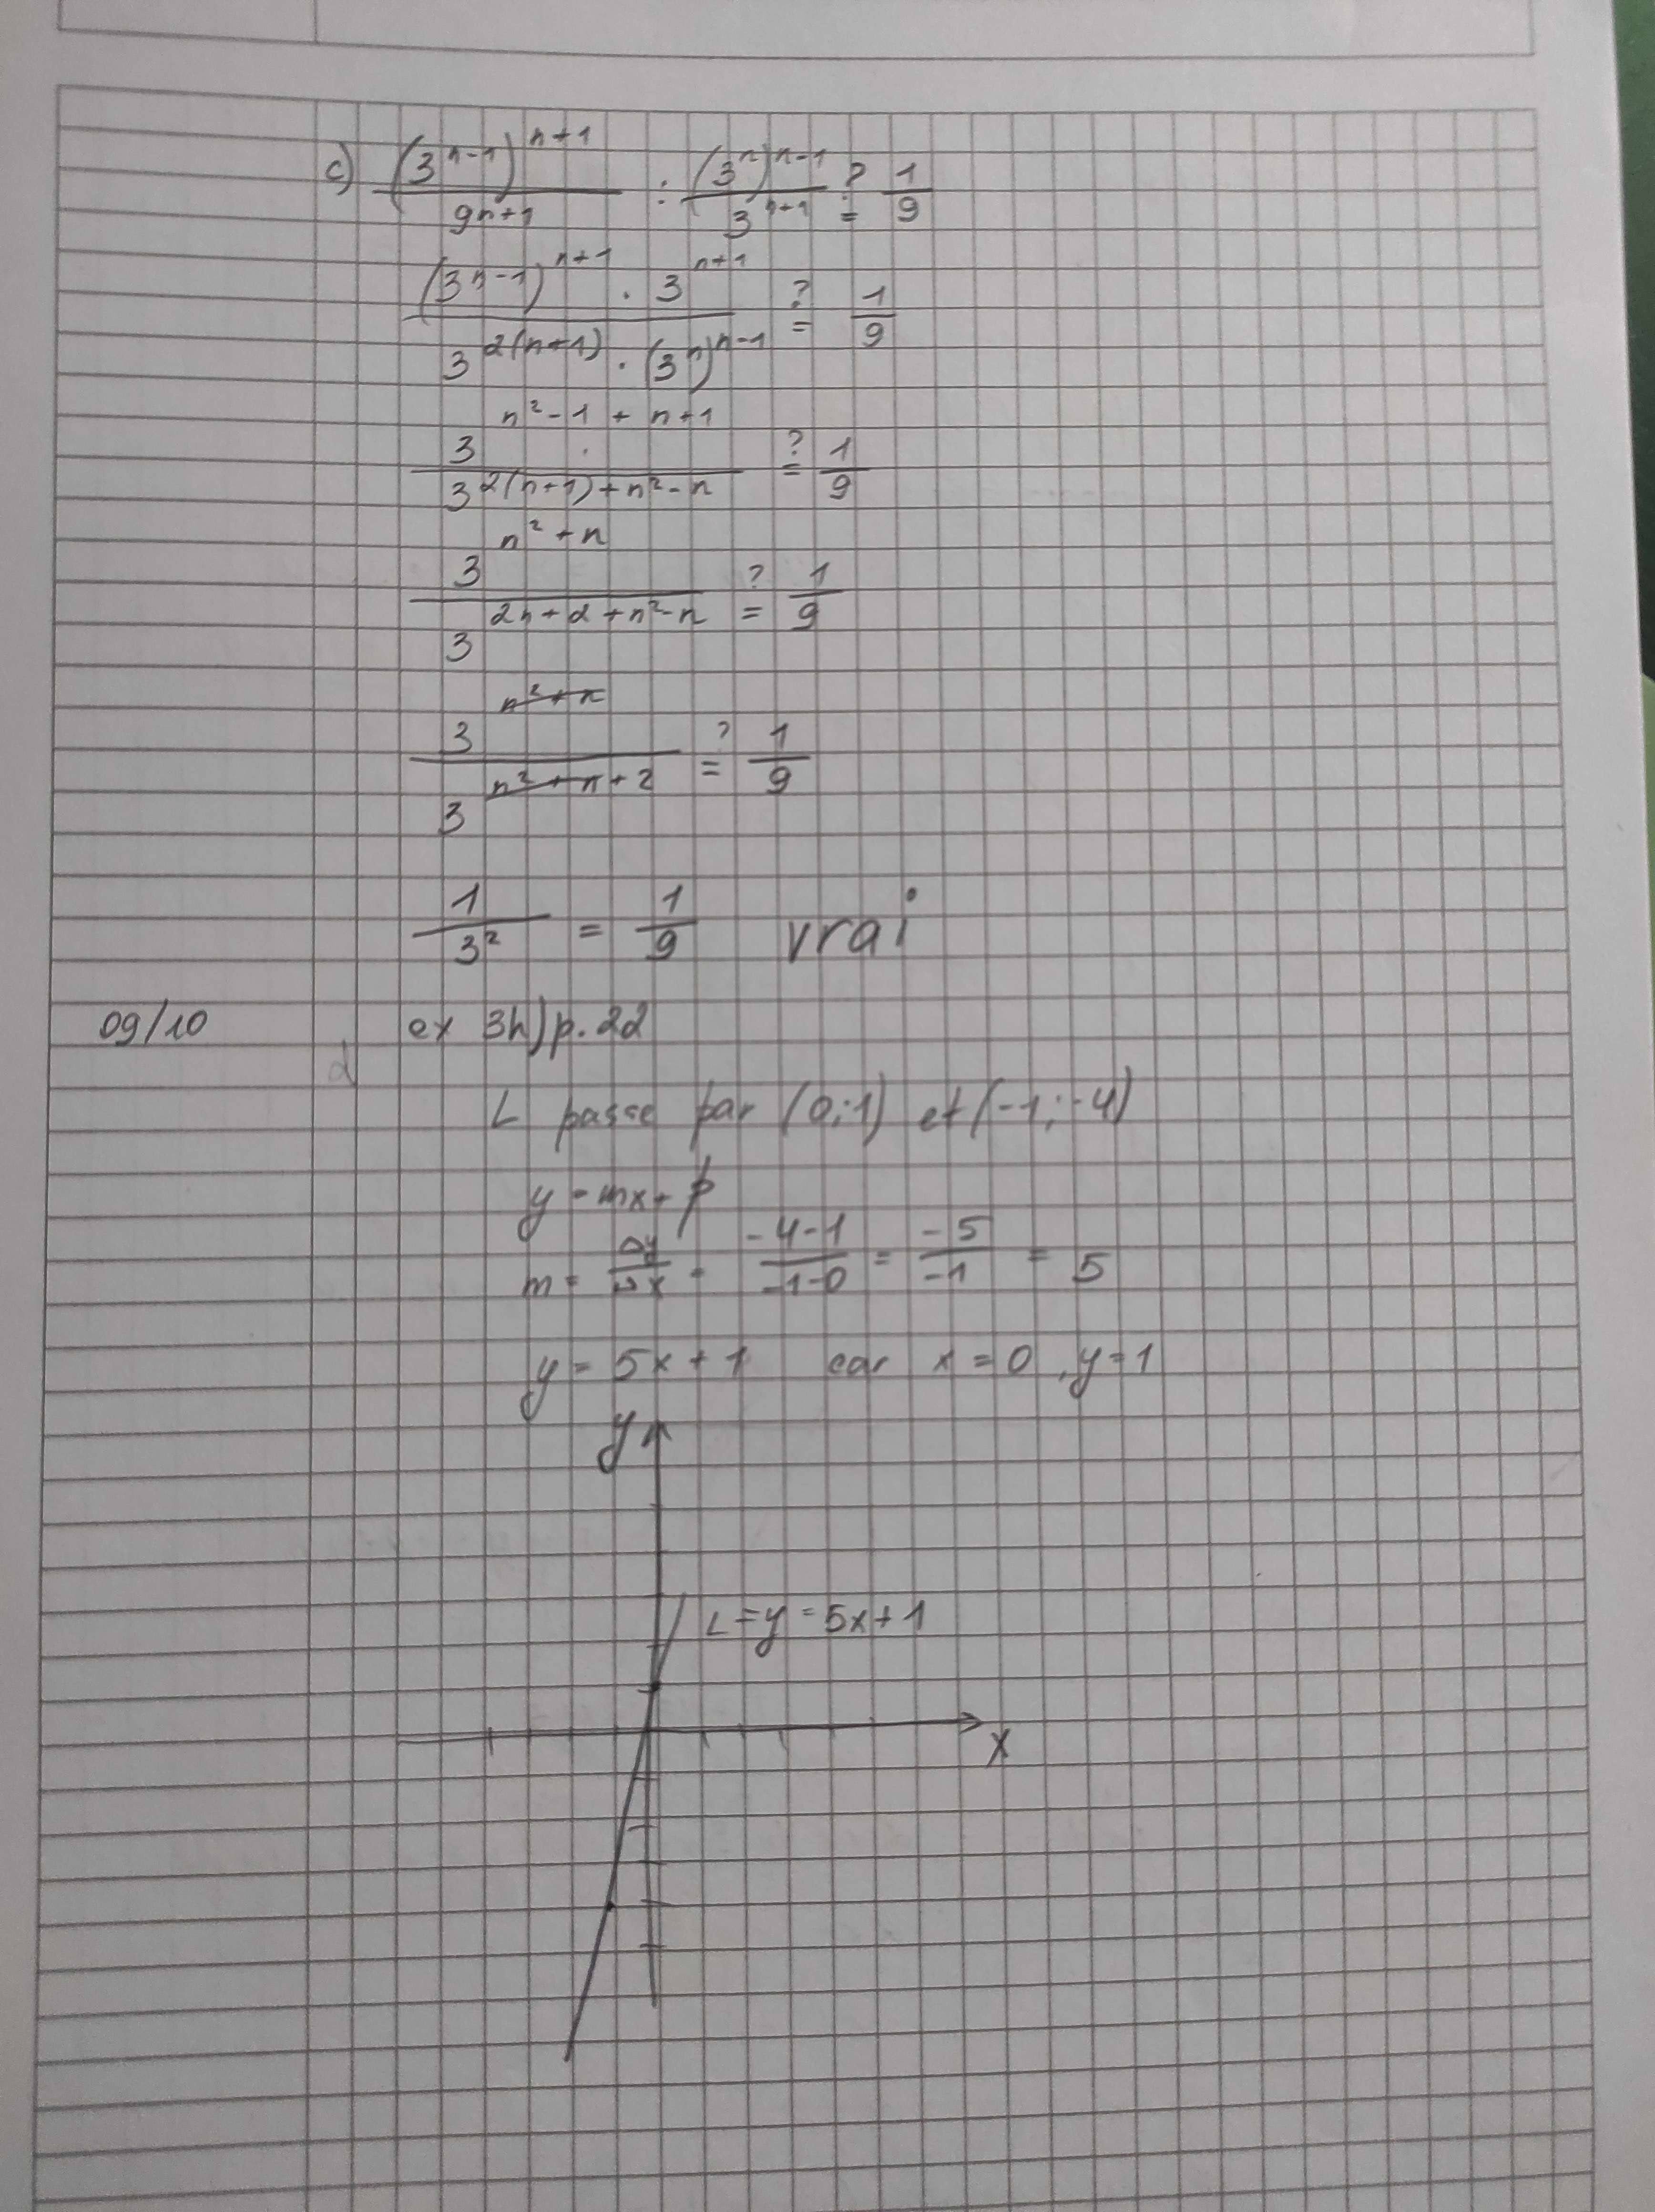 c) (3^{n-1})^{n+1} / 9^{n+1} : (3^n)^{n-1} / 3^{n+1} ?= 1/9
(3^{n-1})^{n+1} · 3^{n+1} / 3^{2(n+1)} · (3^n)^{n-1} ?= 1/9
3^{n²-1+n+1} / 3^{2(n+1)+n²-n} ?= 1/9
3^{n²+n} / 3^{2n+2+n²-n} ?= 1/9
3^{n²+n} / 3^{n²+n+2} ?= 1/9
1/3² = 1/9 vrai
09/10 ex 3h) p.22
L passe par (0;1) et (-1;-4)
y = mx + p
m = Δy/Δx = -4-1/-1-0 = -5/-1 = 5
y = 5x + 1 car x = 0, y = 1
y
L = y = 5x + 1
x